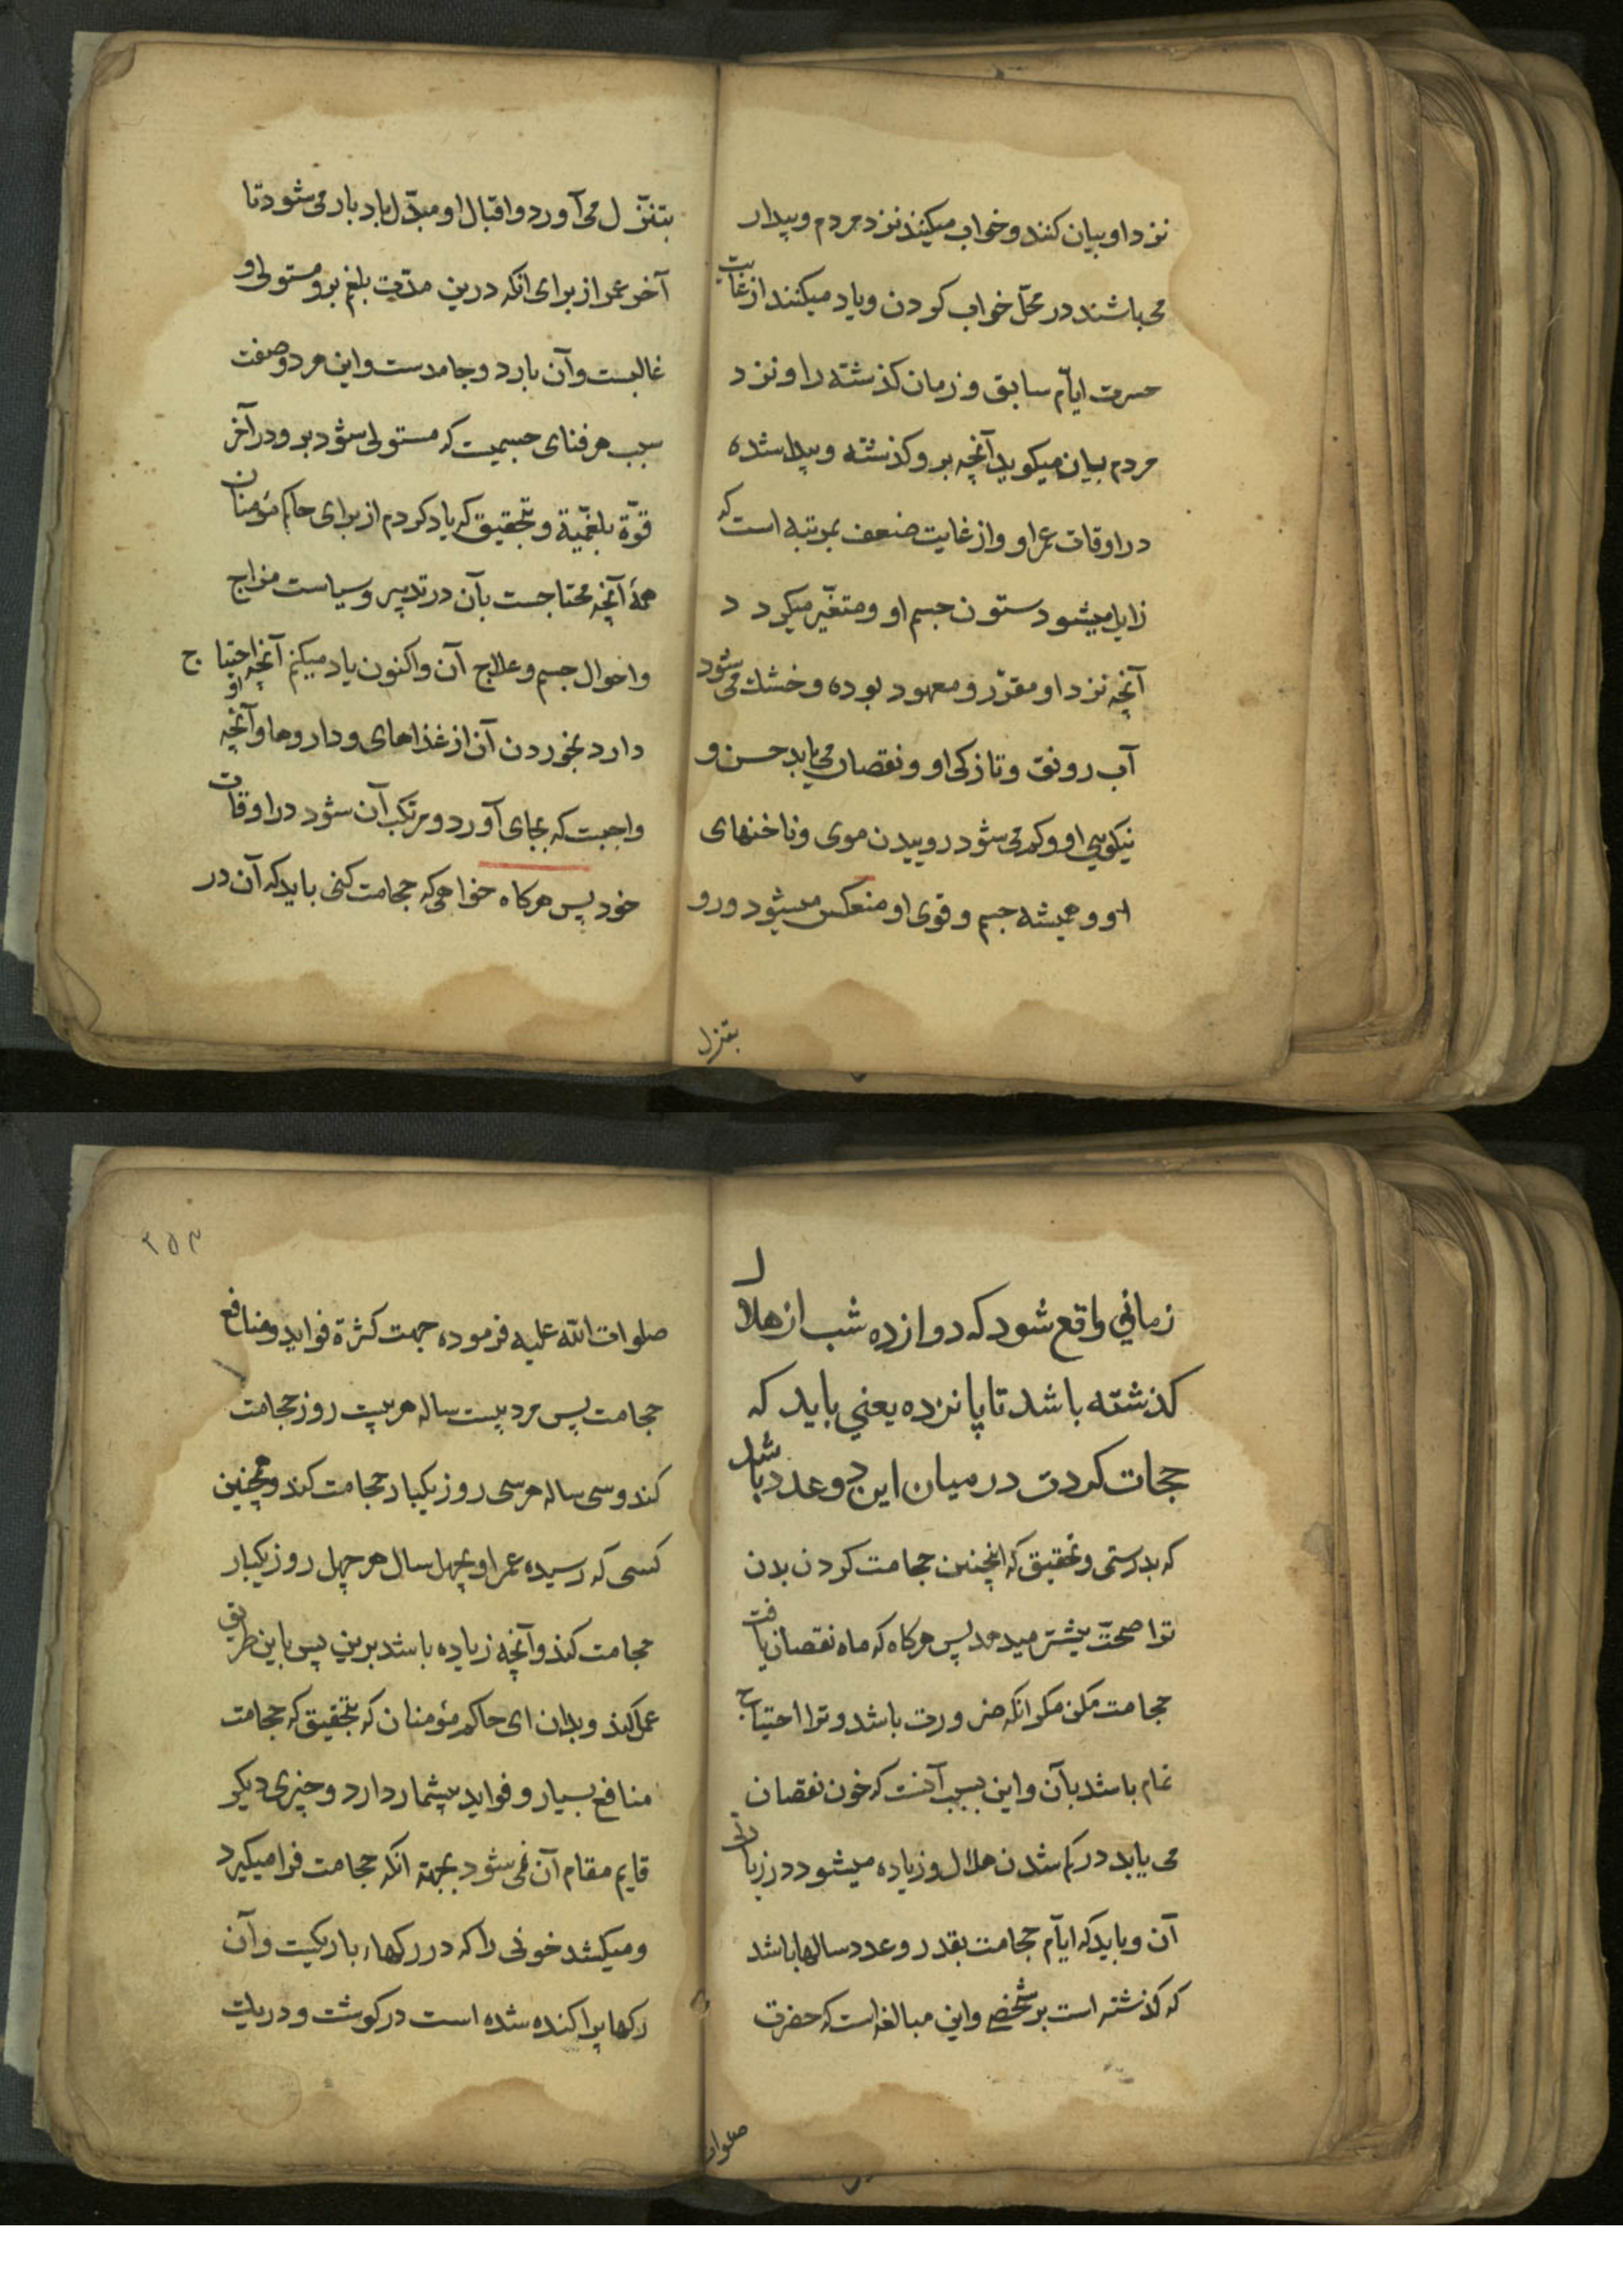 نزد او بیان کنند و خواب میکنند نزد مردم و بیدار
می باشند در محلّ خواب کردن و یاد میکنند از غایت
حسرت ایّام سابق و زمان کذشته را و نزد
مردم بیان میکوید آنچه برو کذشته و پیدا شده
در اوقات عمر او و از غایت ضعف بمرتبه است که
زایل میشود ستون جسم او و متغیّر میکردد
آنچه نزد او مقرّر و معهود بوده و خشک می شود
آب رونق و تازکی او و نقصان می یابد حسن و
نیکویی او و کم می شود روییدن موی و ناخنهای
او و همیشه جسم و قوی او منعکس میشود و رو
بتنزل
بتنزّل می آورد و اقبال او مبدّل بادبار می شود تا
آخر عمر از برای انکه درین مدّت بلغم برو مستولی و
غالبست و آن بارد و جامدست و این هر دو صفت
سبب هر فنای جسمیت که مستولی شود برو در آخر
قوّة بلغمّیة و بتحقیق که یاد کردم از برای حاکم مؤمنان
همهٔ آنچه محتاجست بآن در تدبیر و سیاست مزاج
و احوال جسم و علاج آن و اکنون یاد میکنم آنچه احتیاج
او
دارد بخوردن آن از غذاهای و داروها و آنچه
واجبت که بجای آورد و مرتکب آن شود در اوقات
خود پس هرکاه خواهی که حجامت کنی باید که آن در
زمانی واقع شود که دوازده شب از هلال
کذشته باشد تا پانزده یعنی باید که
حجات کردن در میان این دو عدد باشد
که بدرستی و تحقیق که اینچنین حجامت کردن بدن
ترا صحّت بیشتر میدهد پس هرکاه که ماه نقصان یافت
حجامت مکن مکر انکه ضرورت باشد و ترا احتیاج
تمام باشد بآن و این بسبب آنست که خون نقصان
می یابد در کم شدن هلال و زیاده میشود در زیادتی
آن و باید که ایّام حجامت بقدر و عدد سالها باشد
که کذشته است بر شخص و این مبالغه است که حضرت
صلوات
۲۵۳
صلوات اللّه علیه فرموده جهت کثرة فواید و منافع
حجامت پس مرد بیست ساله هر بیست روز حجامت
کند و سی ساله هر سی روز یکبار حجامت کند و همچنین
کسی که رسیده عمر او بچهل سال هر چهل روز یکبار
حجامت کند و آنچه زیاده باشد برین پس باین طریق
عمل کند و بدان ای حاکم مؤمنان که بتحقیق که حجامت
منافع بسیار و فواید بیشمار دارد و چیزی دیکر
قایم مقام آن نمی شود بجهة انکه حجامت فرا میکیرد
و میکشد خونی را که در رکهاء باریکیت و آن
رکها پراکنده شده است در کوشت و دریات